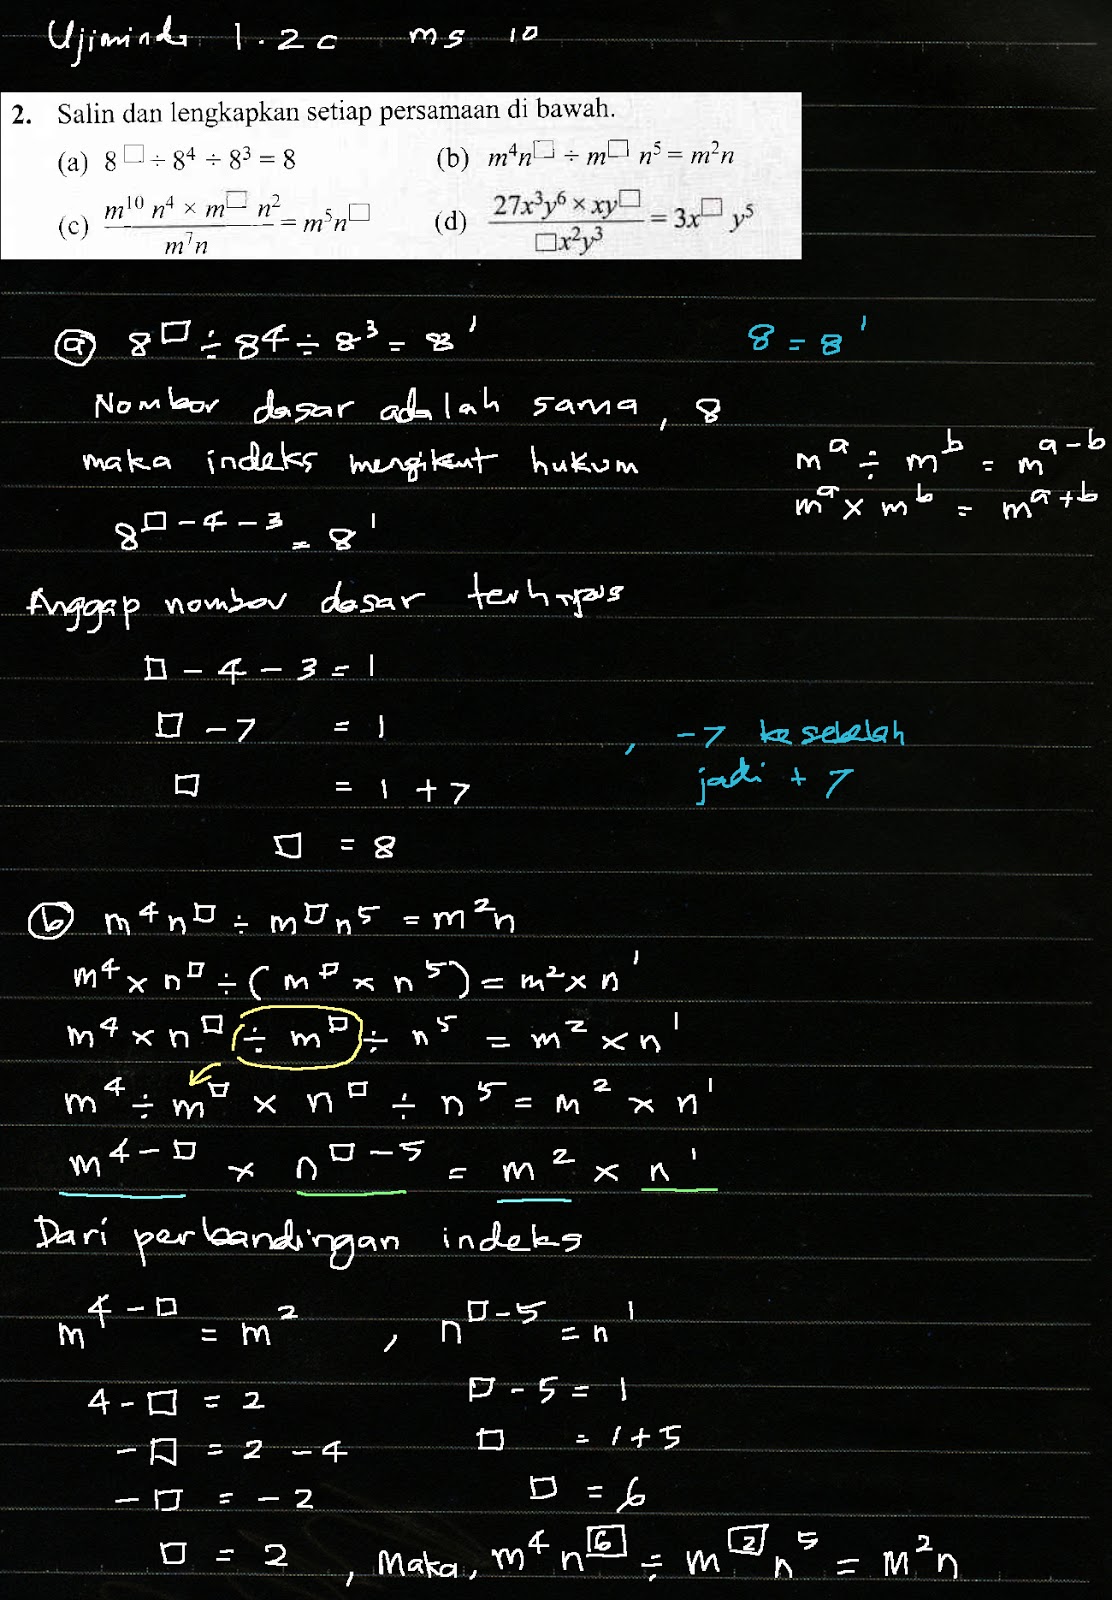 Ujiminda 1.2c ms 10
2. Salin dan lengkapkan setiap persamaan di bawah.
(a) 8^□ ÷ 8⁴ ÷ 8³ = 8 (b) m⁴n^□ ÷ m^□ n⁵ = m²n
(c) (m¹⁰ n⁴ × m^□ n²)/(m⁷n) = m⁵n^□ (d) (27x³y⁶ × xy^□)/(□x²y³) = 3x^□ y⁵
(a) 8^□ ÷ 8⁴ ÷ 8³ = 8¹ 8 = 8¹
Nombor dasar adalah sama, 8
maka indeks mengikut hukum m^a ÷ m^b = m^(a-b)
m^a × m^b = m^(a+b)
8^(□-4-3) = 8¹
Anggap nombor dasar terhapus
□ - 4 - 3 = 1
□ - 7 = 1 , -7 ke sebelah
jadi + 7
□ = 1 + 7
□ = 8
(b) m⁴n^□ ÷ m^□n⁵ = m²n
m⁴ × n^□ ÷ (m^□ × n⁵) = m² × n¹
m⁴ × n^□ ÷ m^□ ÷ n⁵ = m² × n¹
m⁴ ÷ m^□ × n^□ ÷ n⁵ = m² × n¹
m^(4-□) × n^(□-5) = m² × n¹
Dari perbandingan indeks
m^(4-□) = m² , n^(□-5) = n¹
4 - □ = 2 □ - 5 = 1
-□ = 2 - 4 □ = 1+5
-□ = -2 □ = 6
□ = 2 , Maka, m⁴n^[6] ÷ m^[2]n⁵ = m²n